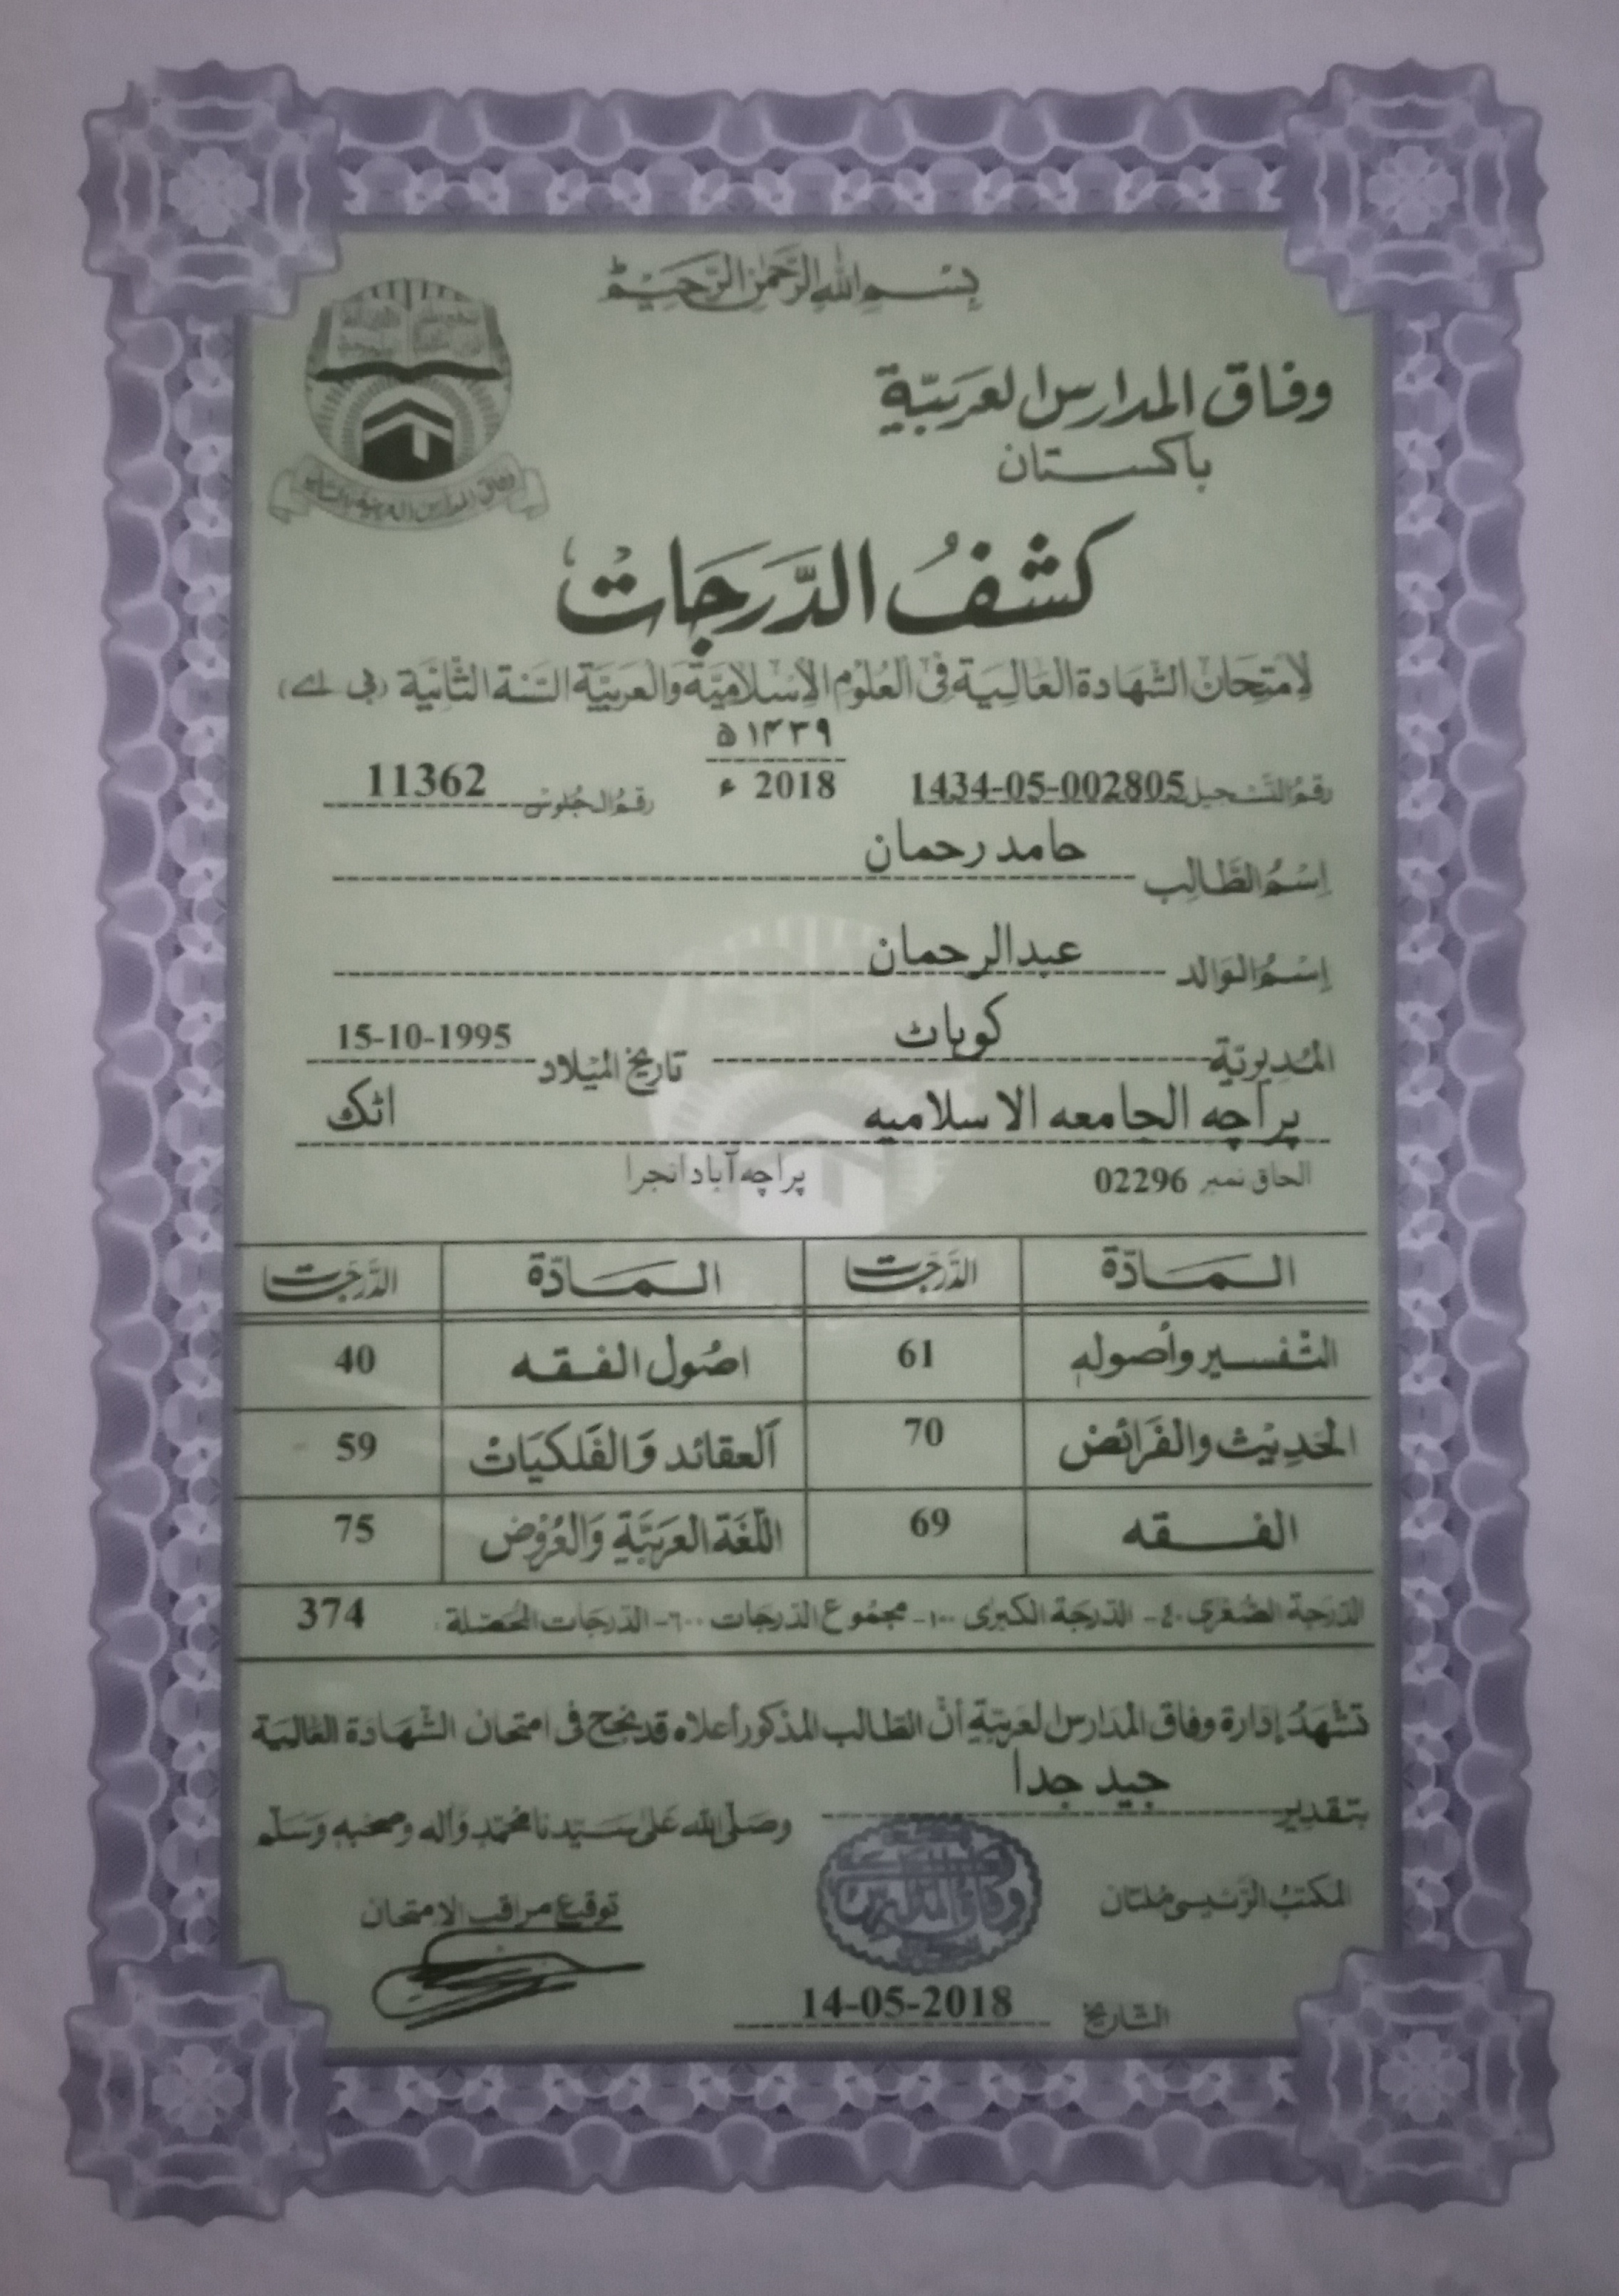 بسم الله الرحمن الرحيم
وفاق المدارس العربية
باكستان
كشف الدرجات
لامتحان الشهادة العالية في العلوم الإسلامية والعربية السنة الثانية (بی اے)
۱۴۳۹ ھ
رقم التسجيل 1434-05-002805 2018 ء رقم الجلوس 11362
اسم الطالب حامد رحمان
اسم الوالد عبدالرحمان
المديرية كوہاٹ تاريخ الميلاد 15-10-1995
پراچه الجامعه الاسلاميه اٹک
الحاق نمبر 02296 پراچه آباد انجرا
المادة الدرجات المادة الدرجات
التفسير وأصوله 61 اصول الفقه 40
الحديث والفرائض 70 العقائد والفلكيات 59
الفقه 69 اللغة العربية والعروض 75
الدرجة الصغرى ٤٠- الدرجة الكبرى ١٠٠- مجموع الدرجات ٦٠٠- الدرجات المحصلة 374
تشهد إدارة وفاق المدارس العربية أن الطالب المذكور أعلاه قد نجح في امتحان الشهادة العالية
بتقدير جيد جدا وصلى الله على سيدنا محمد وآله وصحبه وسلم
المكتب الرئيسي ملتان توقيع مراقب الامتحان
التاريخ 14-05-2018